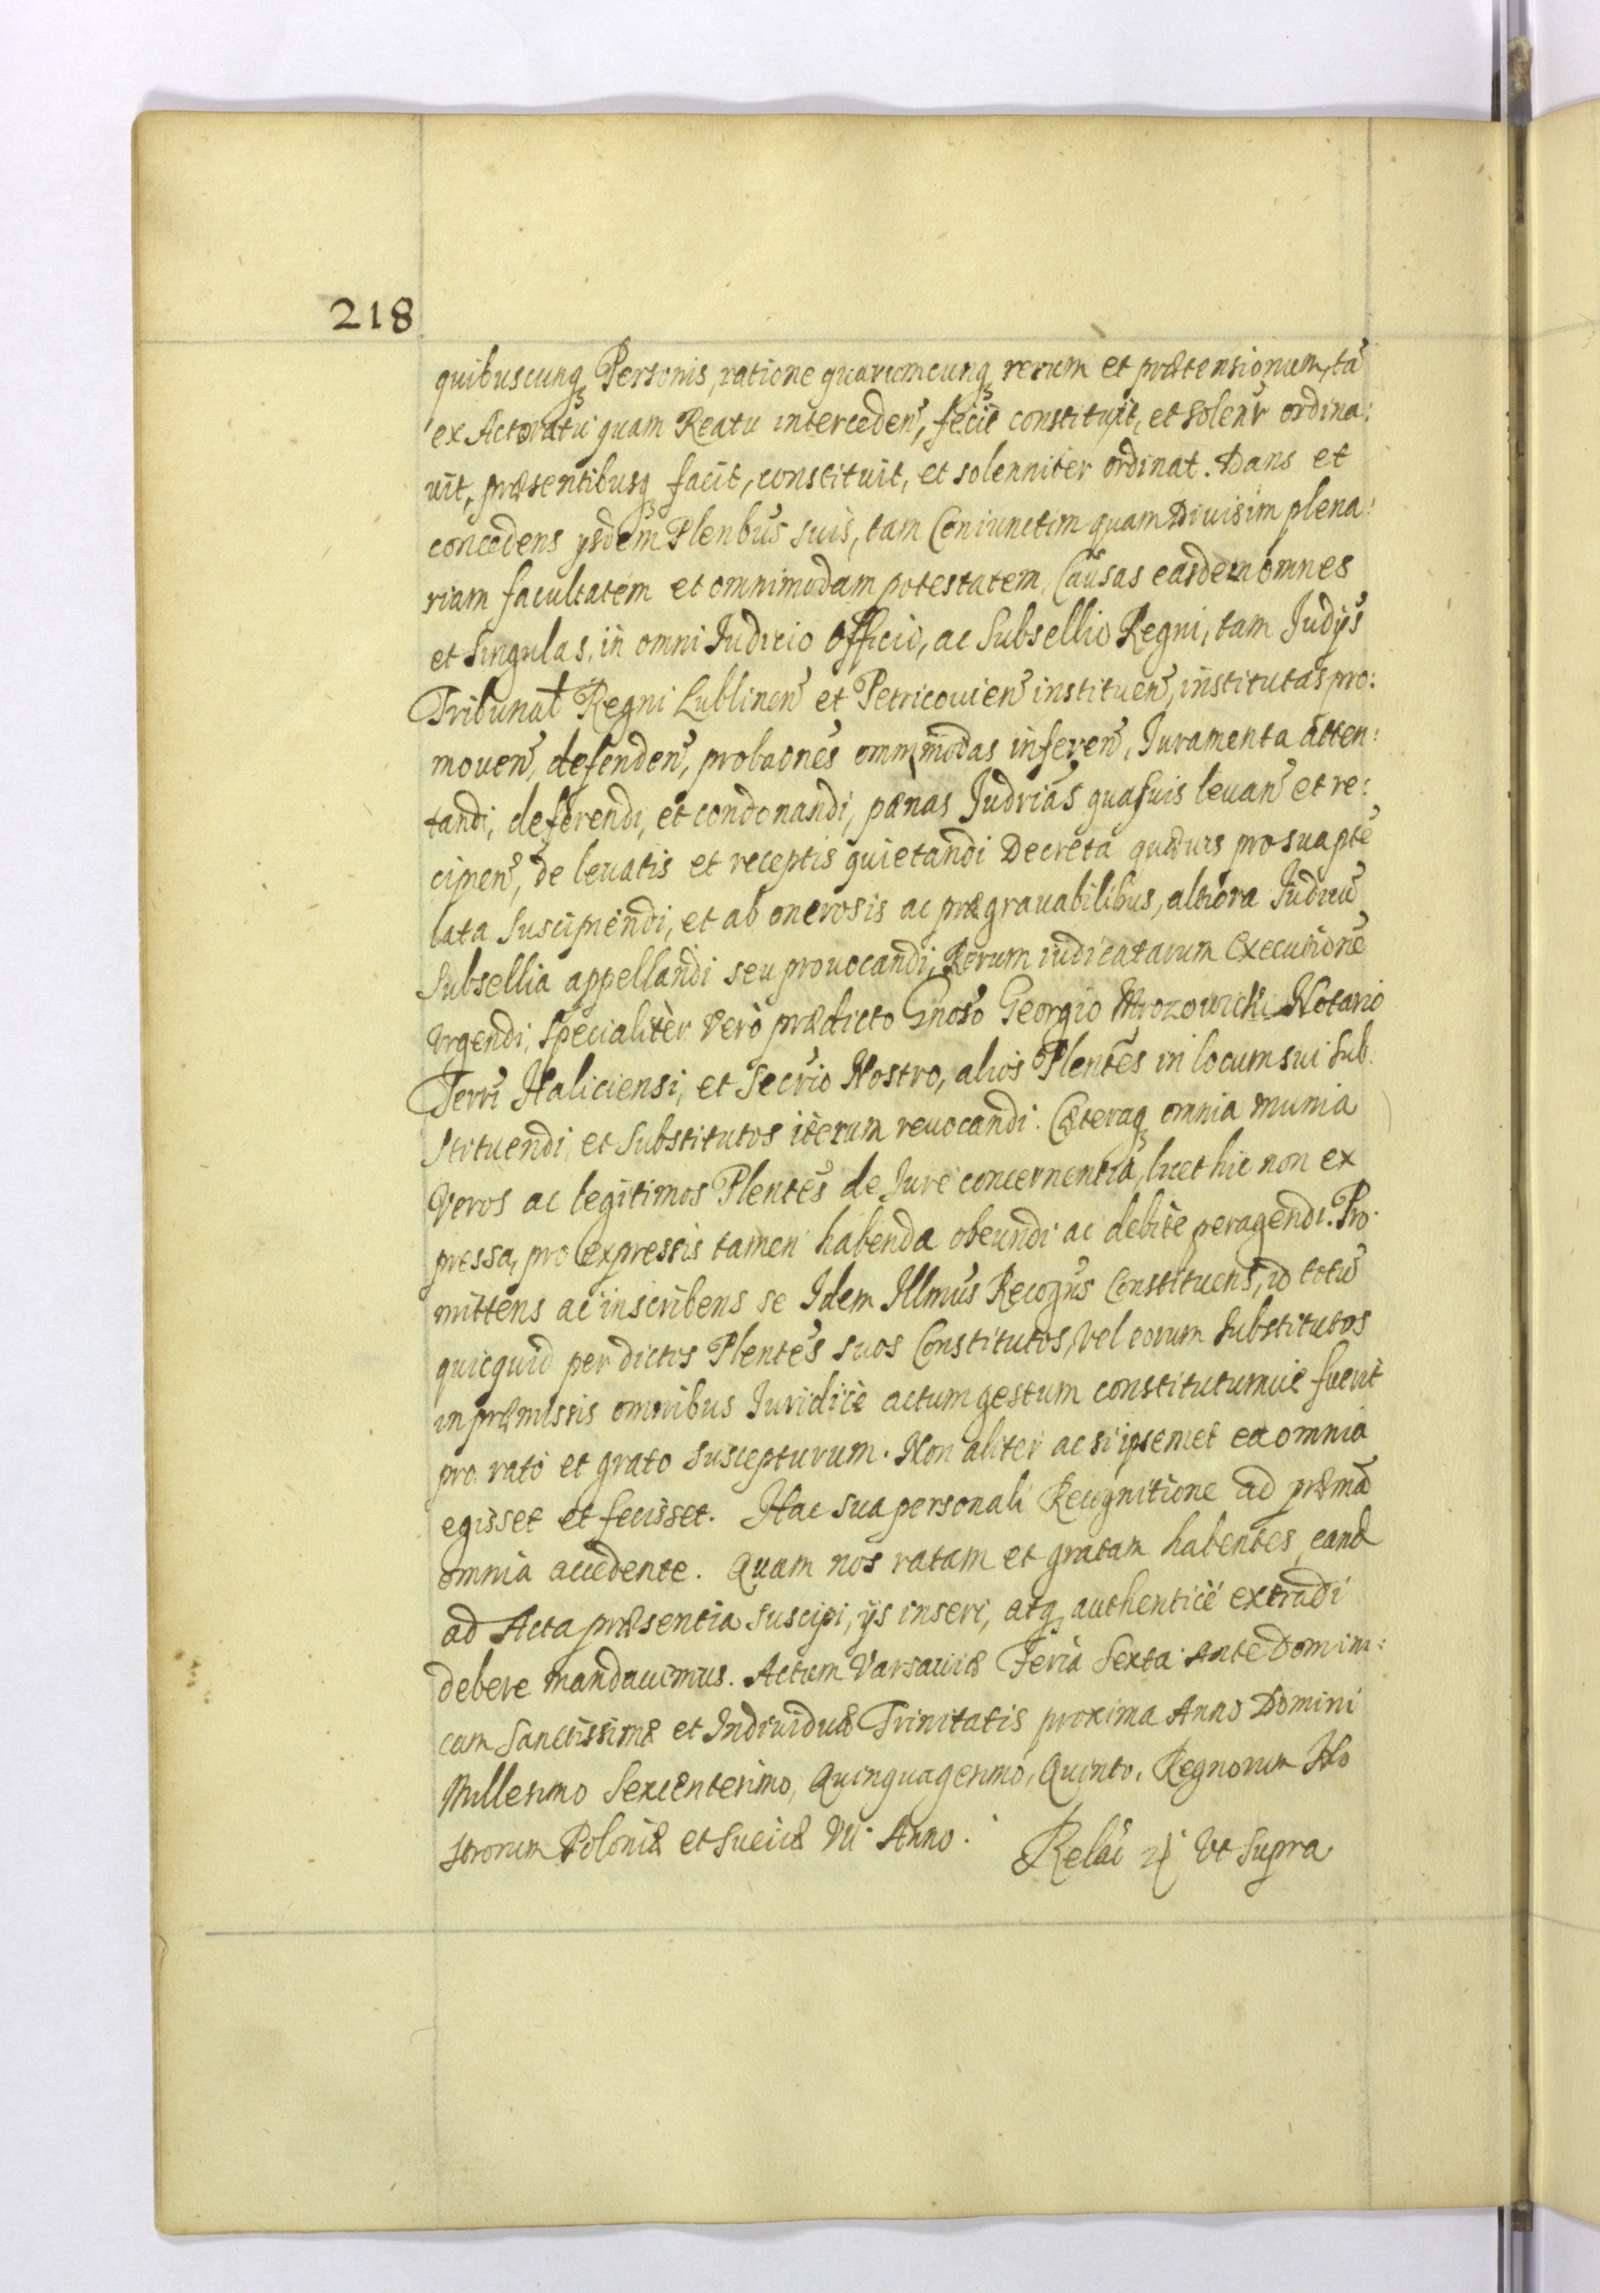 218
quibuscunq Personis, ratione quarumcunq rerum et prætensionum, tā
ex Actoratu quam Reatu interceden̄, fecit constituit, et solenr̄ ordina:
uit, præsentibusq facit, constituit, et solenniter ordinat. Dans et
concedens ysdem Plenbūs suis, tam Coniunctim quam Diuisim plena:
riam facultatem et omnimodam potestatem, Causas easdem omnes
et singulas, in omni Iudicio Officio, ac Subsellio Regni, tam Judys̄
Tribunał Regni Lublinen̄ et Petricouien̄ instituen̄, institutas pro:
mouen̄, defenden̄, probaōnes omnimodas inferen̄, Iuramenta atten:
tandi, deferendi, et condonandi, pænas Judrias̄ quasuis leuan̄ et re:
cipien̄, de leuatis et receptis quietandi Decreta quæuis pro sua pte
lata suscipiendi, et ab onerosis ac prægrauabilibus, altiora Iudicū
Subsellia appellandi seu prouocandi, Rerum iudicatarum Executionē
Vrgendi, specialiter Vero prædicto Gnoso Georgio Mrozowicki Notario
Terrī Haliciensi, et Secrīo Nostro, alios Plentēs in locum sui sub:
stituendi, et substitutos iterum reuocandi. Cæteraq omnia munia
Veros ac legitimos Plentēs de Iure concernentia, licet hic non ex
pressa, pro expressis tamen habenda obeundi ac debite peragendi. Pro:
mittens ac inscribens se Idem Illmūs Recogn̄s Constituens, id totū
quicquid per dictos Plentēs suos Constitutos, Vel eorum Substitutos
in præmissis omnibus Iuridice actum gestum constitutumue fuerit
pro rato et grato suscepturum. Non aliter ac si ipsemet ea omnia
egisset et fecisset. Hac sua personali Recognitione ad præmā
omnia accedente. Quam nos ratam et gratam habentes, eand
ad Acta præsentia suscipi, ijs inseri, atq authentice extradi
debere mandauimus. Actum Varsauiæ Feria Sexta Ante Domini:
cam Sanctissimæ et Indiuiduæ Trinitatis proxima Anno Domini
Millesimo Sexcentesimo, Quinquagesimo, Quinto, Regnorum No
strorum Poloniæ et Sueciæ VII Anno. Relāi Vt Supra